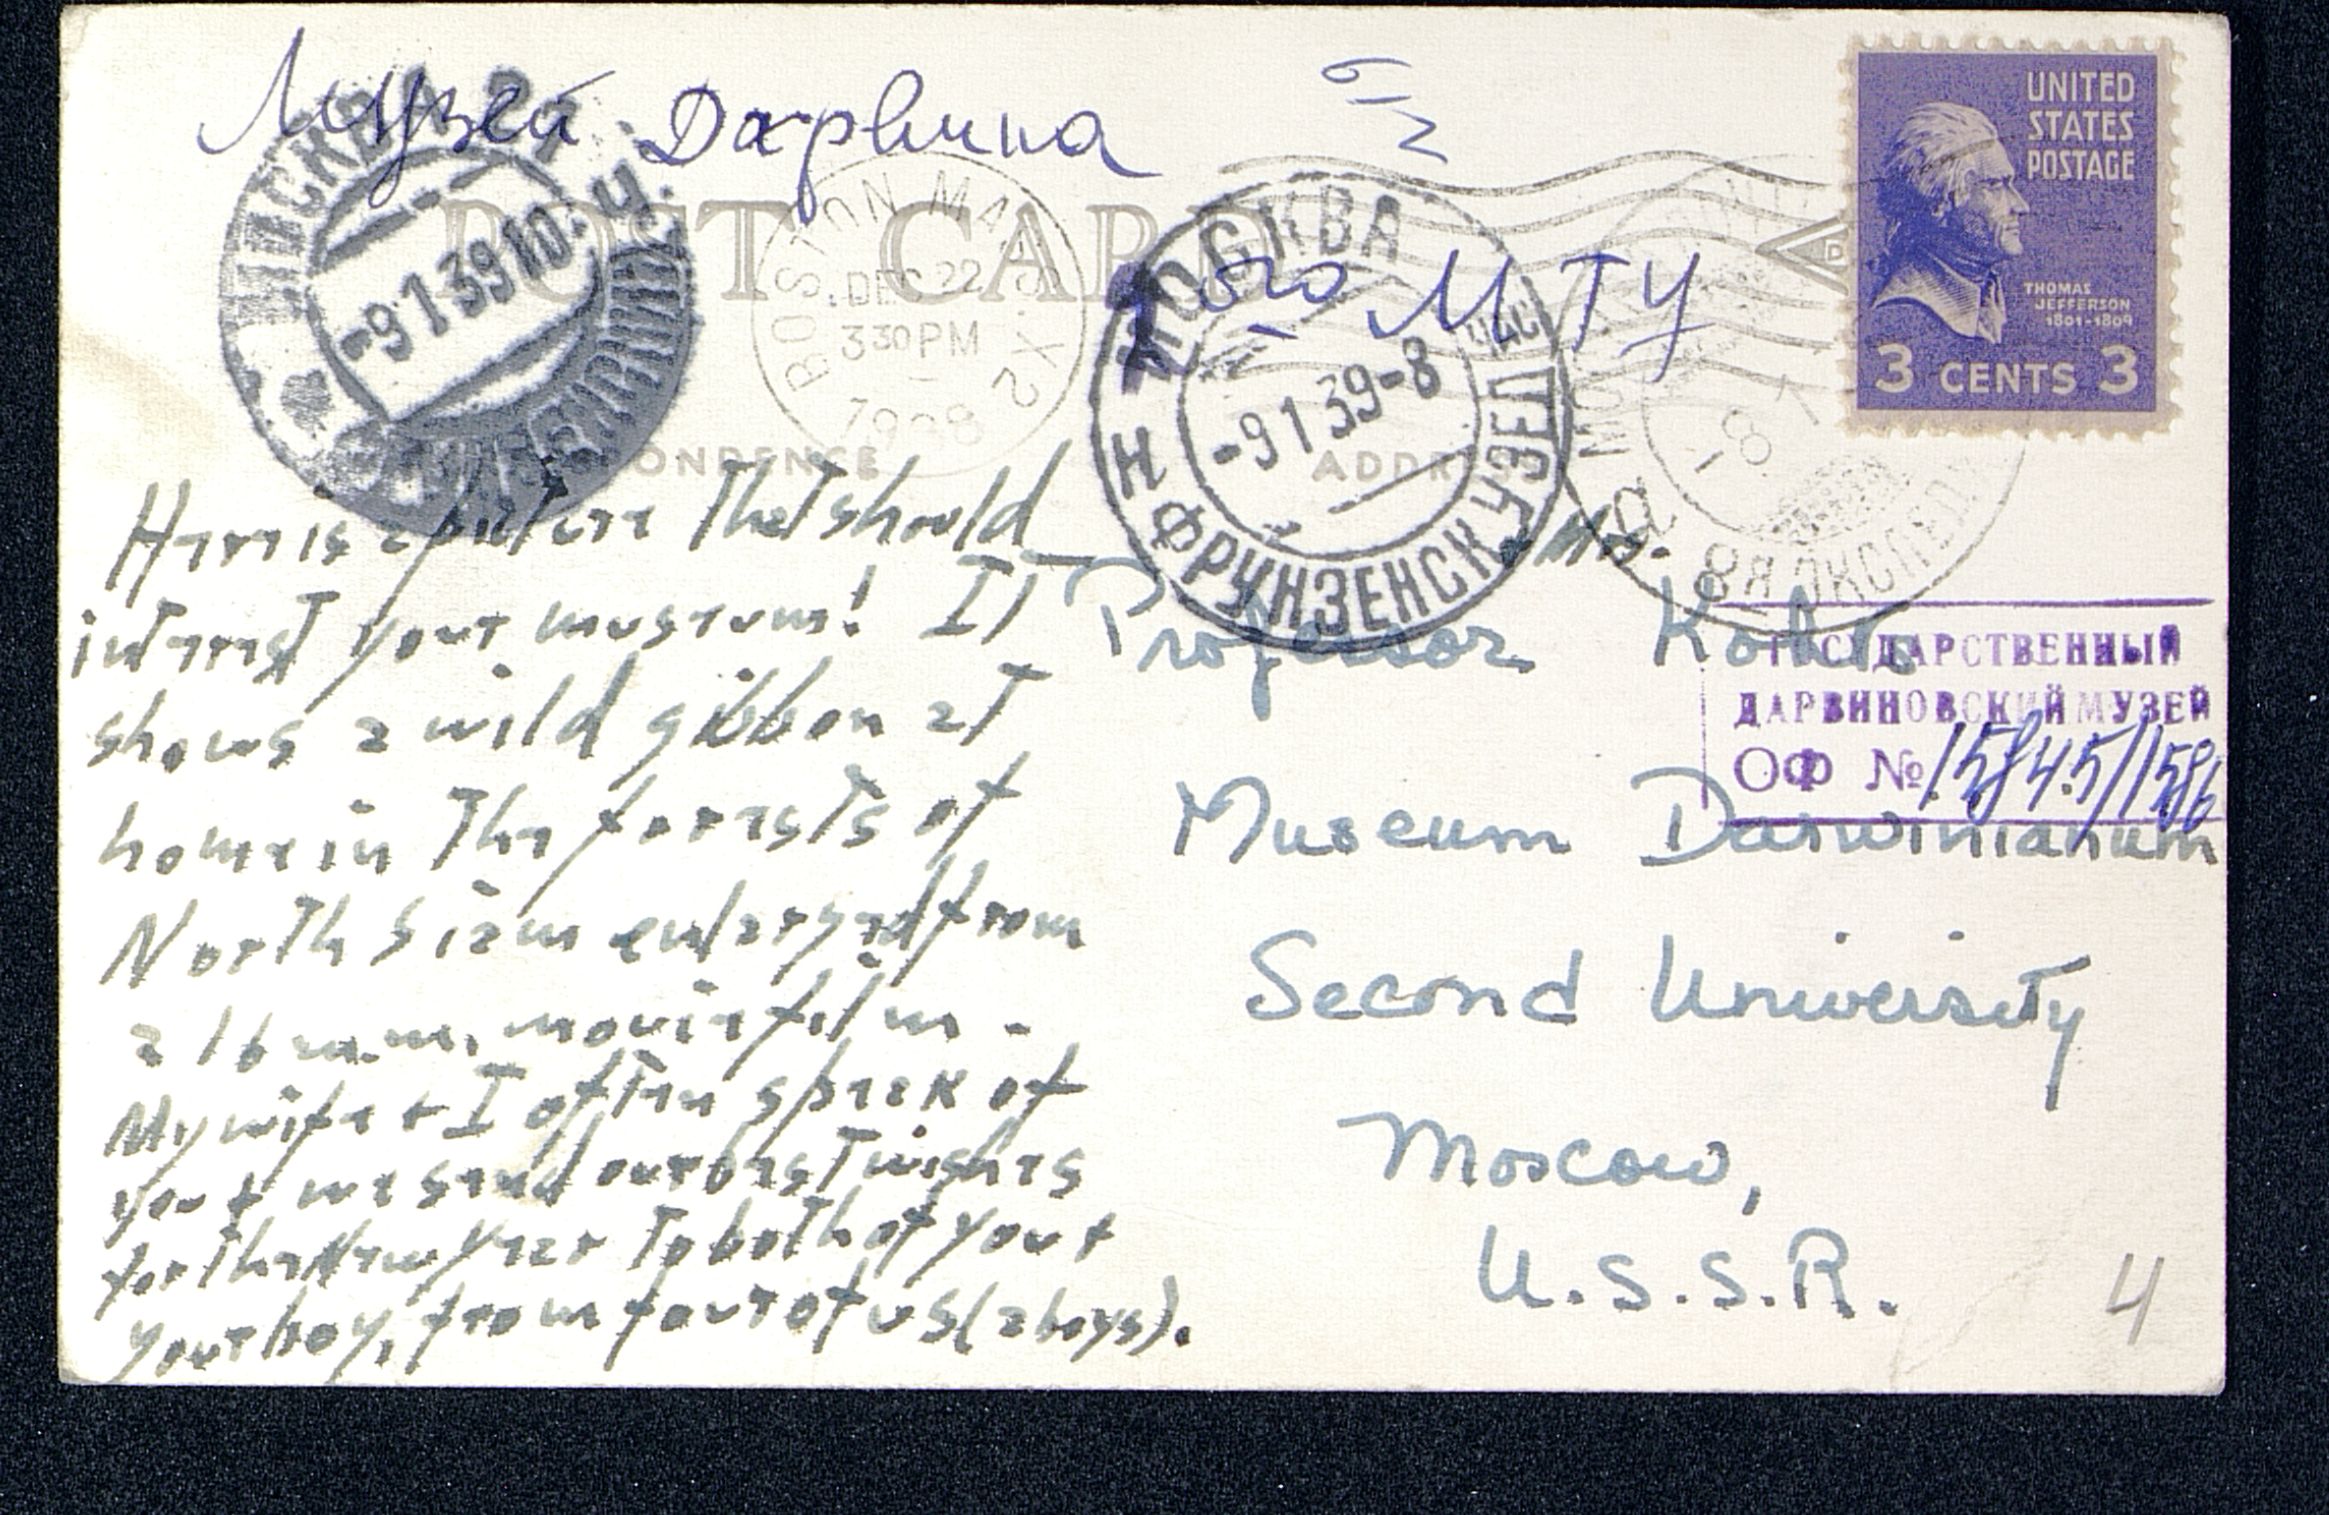 Музей Дарвина
2го МГУ
POST CARD
МОСКВА 27
-9 1 39 10. Ч.
BOSTON MASS.
DEC 22
3 30 PM
1938
МОСКВА
-9 1 39 - 8
Н ФРУНЗЕНСК УЗЕЛ
UNITED
STATES
POSTAGE
THOMAS
JEFFERSON
1801-1809
3 CENTS 3
ADDRESS
Here is a picture that should
interest your museum! It
shows a wild gibbon at
home in the forests of
North Siam enlarged from
a 16 m.m. movie film -
My wife & I often speak of
you & we send our best wishes
for the New Year to both of you &
your boy, from four of us (2 boys).
Professor Kohts
Museum Darwinianum
Second University
Moscow,
U.S.S.R.
ГОСУДАРСТВЕННЫЙ
ДАРВИНОВСКИЙ МУЗЕЙ
ОФ №
4